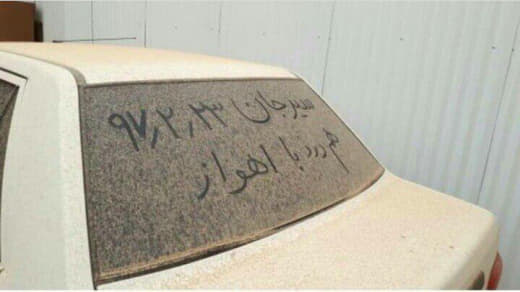 سیرجان ۹۷٫۲٫۲۳
هم درد با اهواز